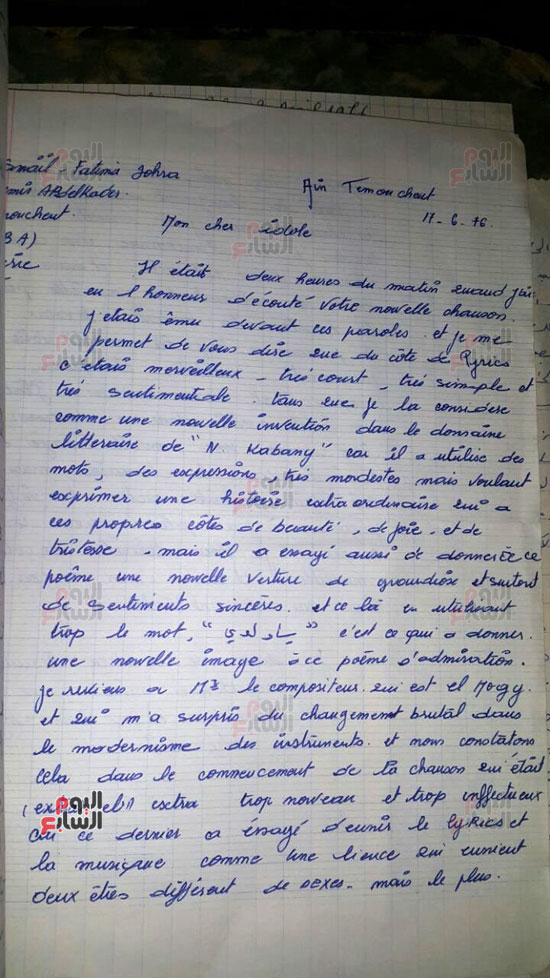 Smaïl Fatima Zohra
Ain Temouchent
Abdelkader.
mouchent
17-6-76.
BA)
Mon cher idole
rie
Il était deux heures du matin quand j'ai
eu l honneur d'écouté votre nouvelle chanson.
j'etais ému devant ces paroles. et je me
permet de vous dire que du côté de lyrics
c'étais merveilleux - très court, très simple et
très sentimentale. tans que je la considère
comme une nouvelle invention dans le domaine
litteraire de "N. Kabany" car il a utilisé des
mots, des expressions, très modestes mais voulant
exprimer une histoire extraordinaire qui a
ces propres côtés de beauté, de joie, et de
tristesse. mais il a essayé aussi de donner à ce
poême une nouvelle verture de grandiôse et surtout
de sentiments sincères. et ce là en utilisant
trop le mot, "ياولدي" c'est ce qui a donner
une nouvelle image à ce poême d'admiration.
je reviens a Mr le compositeur qui est el Mogy.
et qui m'a surpris du changement brutal dans
le modernisme des instruments. et nous constatons
cela dans le commencement de ta chanson qui était
extra trop nouveau et trop inffectueux
car ce dernier a éssayé d'eunir le lyrics et
la musique comme une lience qui runient
deux êtres différent de sexes. mais le plus.
اليوم السابع